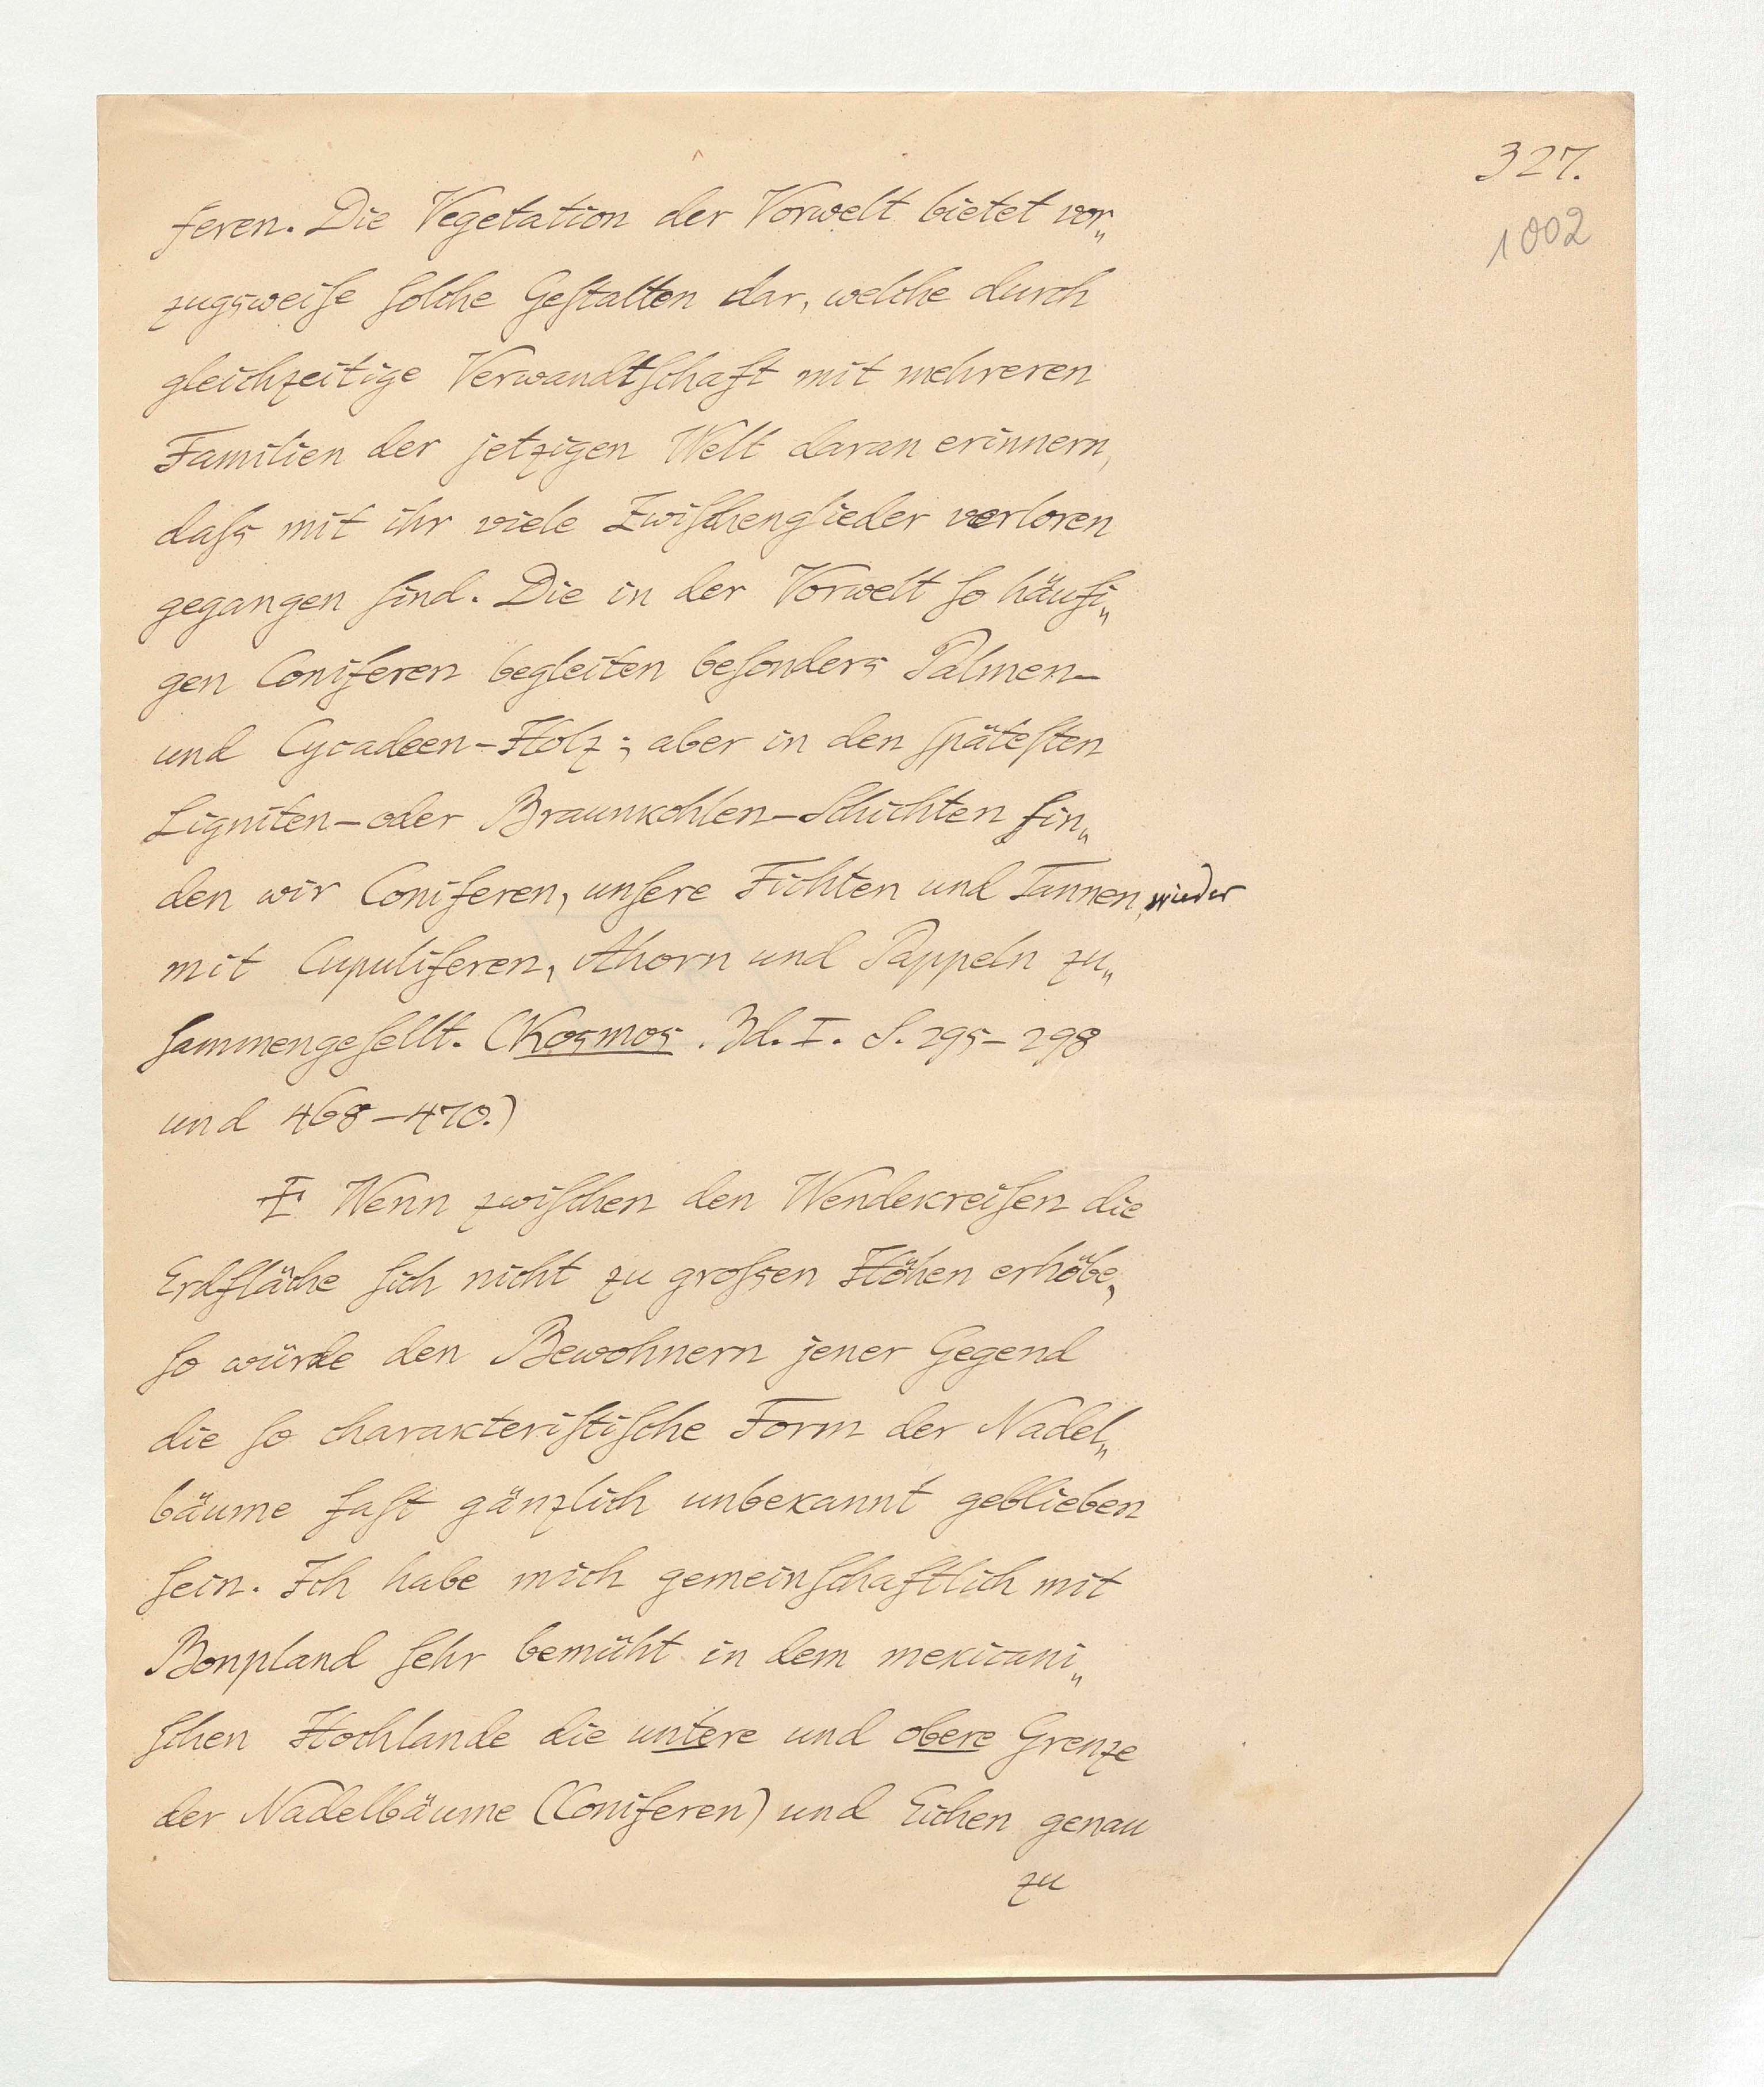 327.
1002
feren. Die Vegetation der Vorwelt bietet vor„
zugsweise solche Gestalten dar, welche durch
gleichzeitige Verwandtschaft mit mehreren
Familien der jetzigen Welt daran erinnern,
dass mit ihr viele Zwischenglieder verloren
gegangen sind. Die in der Vorwelt so häufi„
gen Coniferen begleiten besonders Palmen-
und Cycadeen-Holz; aber in den spätesten
Ligniten- oder Braunkohlen-Schichten fin„
den wir Coniferen, unsere Fichten und Tannen, wieder
mit Cupuliferen, Ahorn und Pappeln zu„
sammengesellt. (Kosmos. Bd. I. S. 295-298
und 468-470.)
Wenn zwischen den Wendekreisen die
Erdfläche sich nicht zu grossen Höhen erhöbe,
so würde den Bewohnern jener Gegend
die so charakteristische Form der Nadel„
bäume fast gänzlich unbekannt geblieben
sein. Ich habe mich gemeinschaftlich mit
Bonpland sehr bemüht in dem mexicani„
schen Hochlande die untere und obere Grenze
der Nadelbäume (Coniferen) und Eichen genau
zu